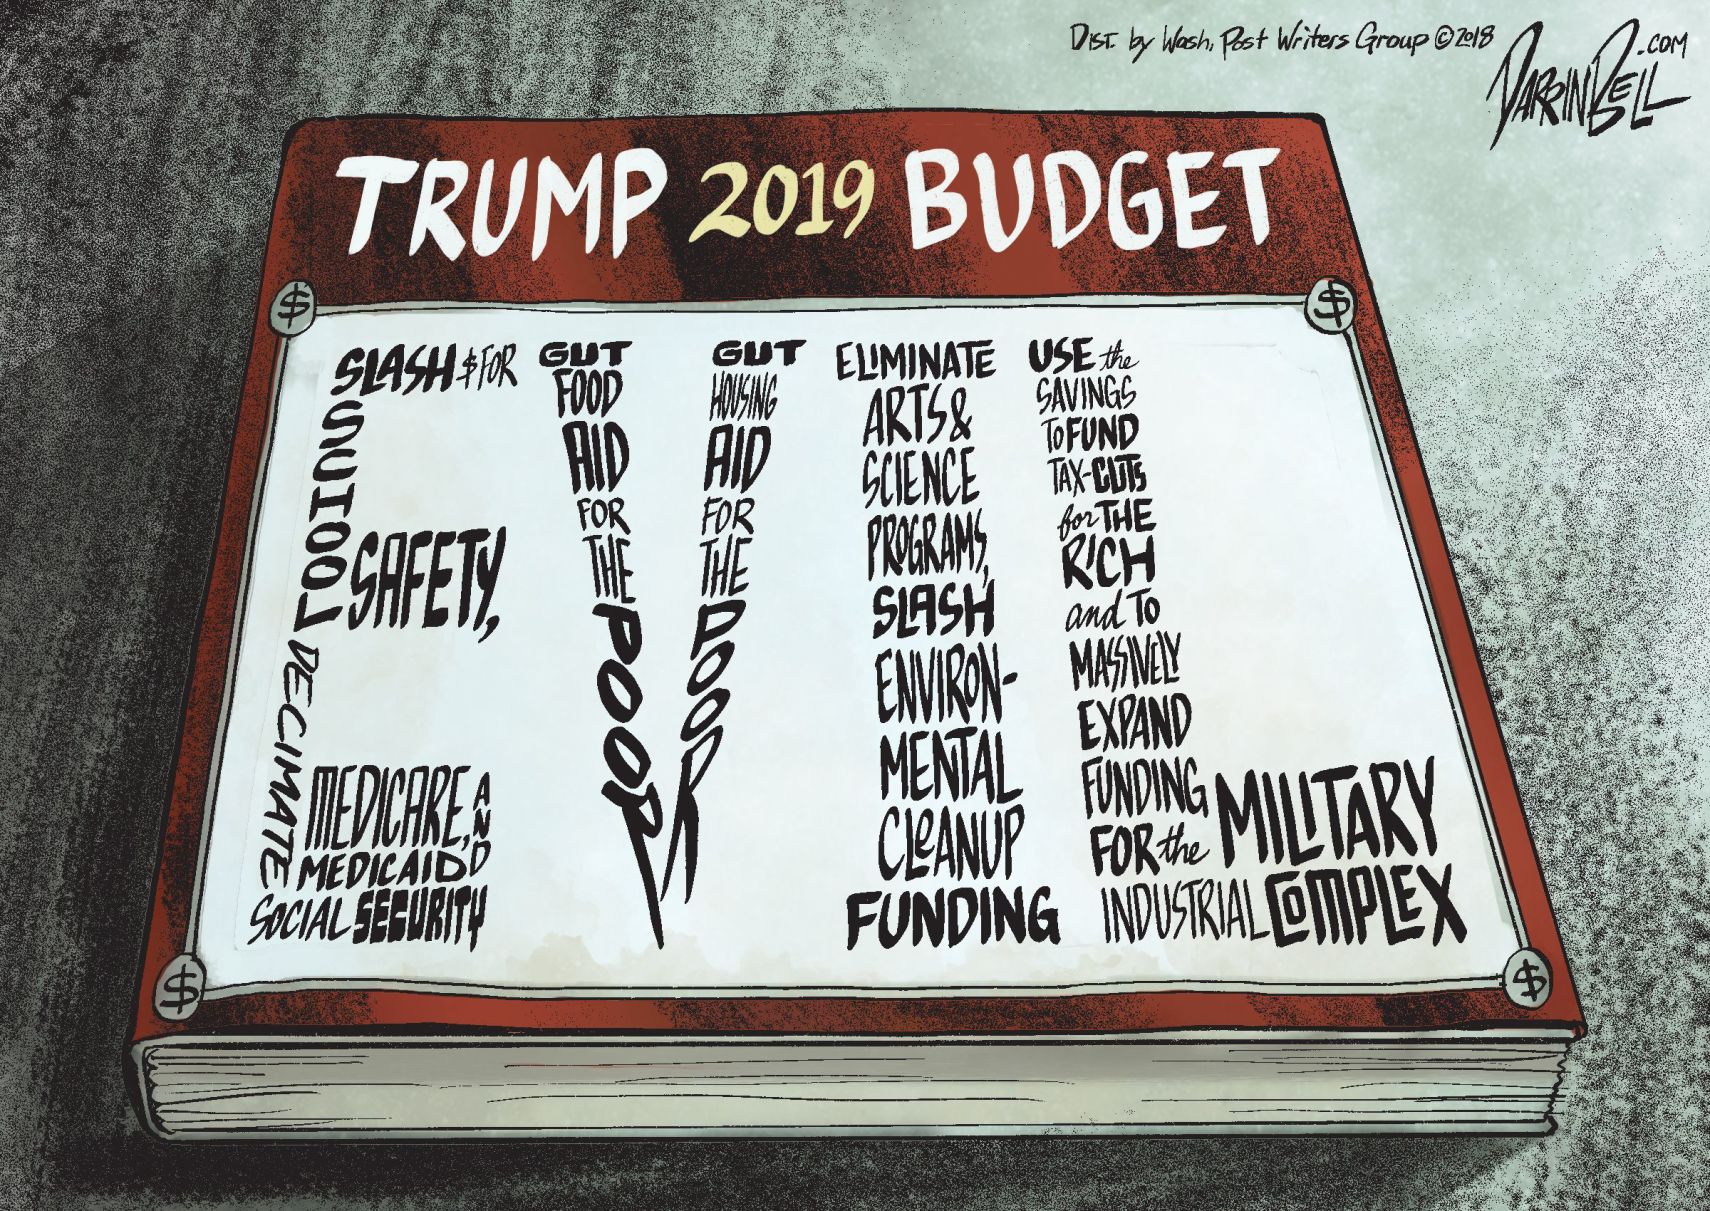 Dist. by Wash. Post Writers Group © 2018
DARRINBELL.COM
TRUMP 2019 BUDGET
$
$
SLASH $ FOR
SCHOOL
SAFETY,
DECIMATE
MEDICARE,
AND
MEDICAID
SOCIAL SECURITY
GUT
FOOD
AID
FOR
THE
POOR
GUT
HOUSING
AID
FOR
THE
POOR
ELIMINATE
ARTS &
SCIENCE
PROGRAMS,
SLASH
ENVIRON-
MENTAL
CLEANUP
FUNDING
USE the
SAVINGS
TO FUND
TAX-CUTS
for THE
RICH
and TO
MASSIVELY
EXPAND
FUNDING
FOR the MILITARY
INDUSTRIAL COMPLEX
$
$